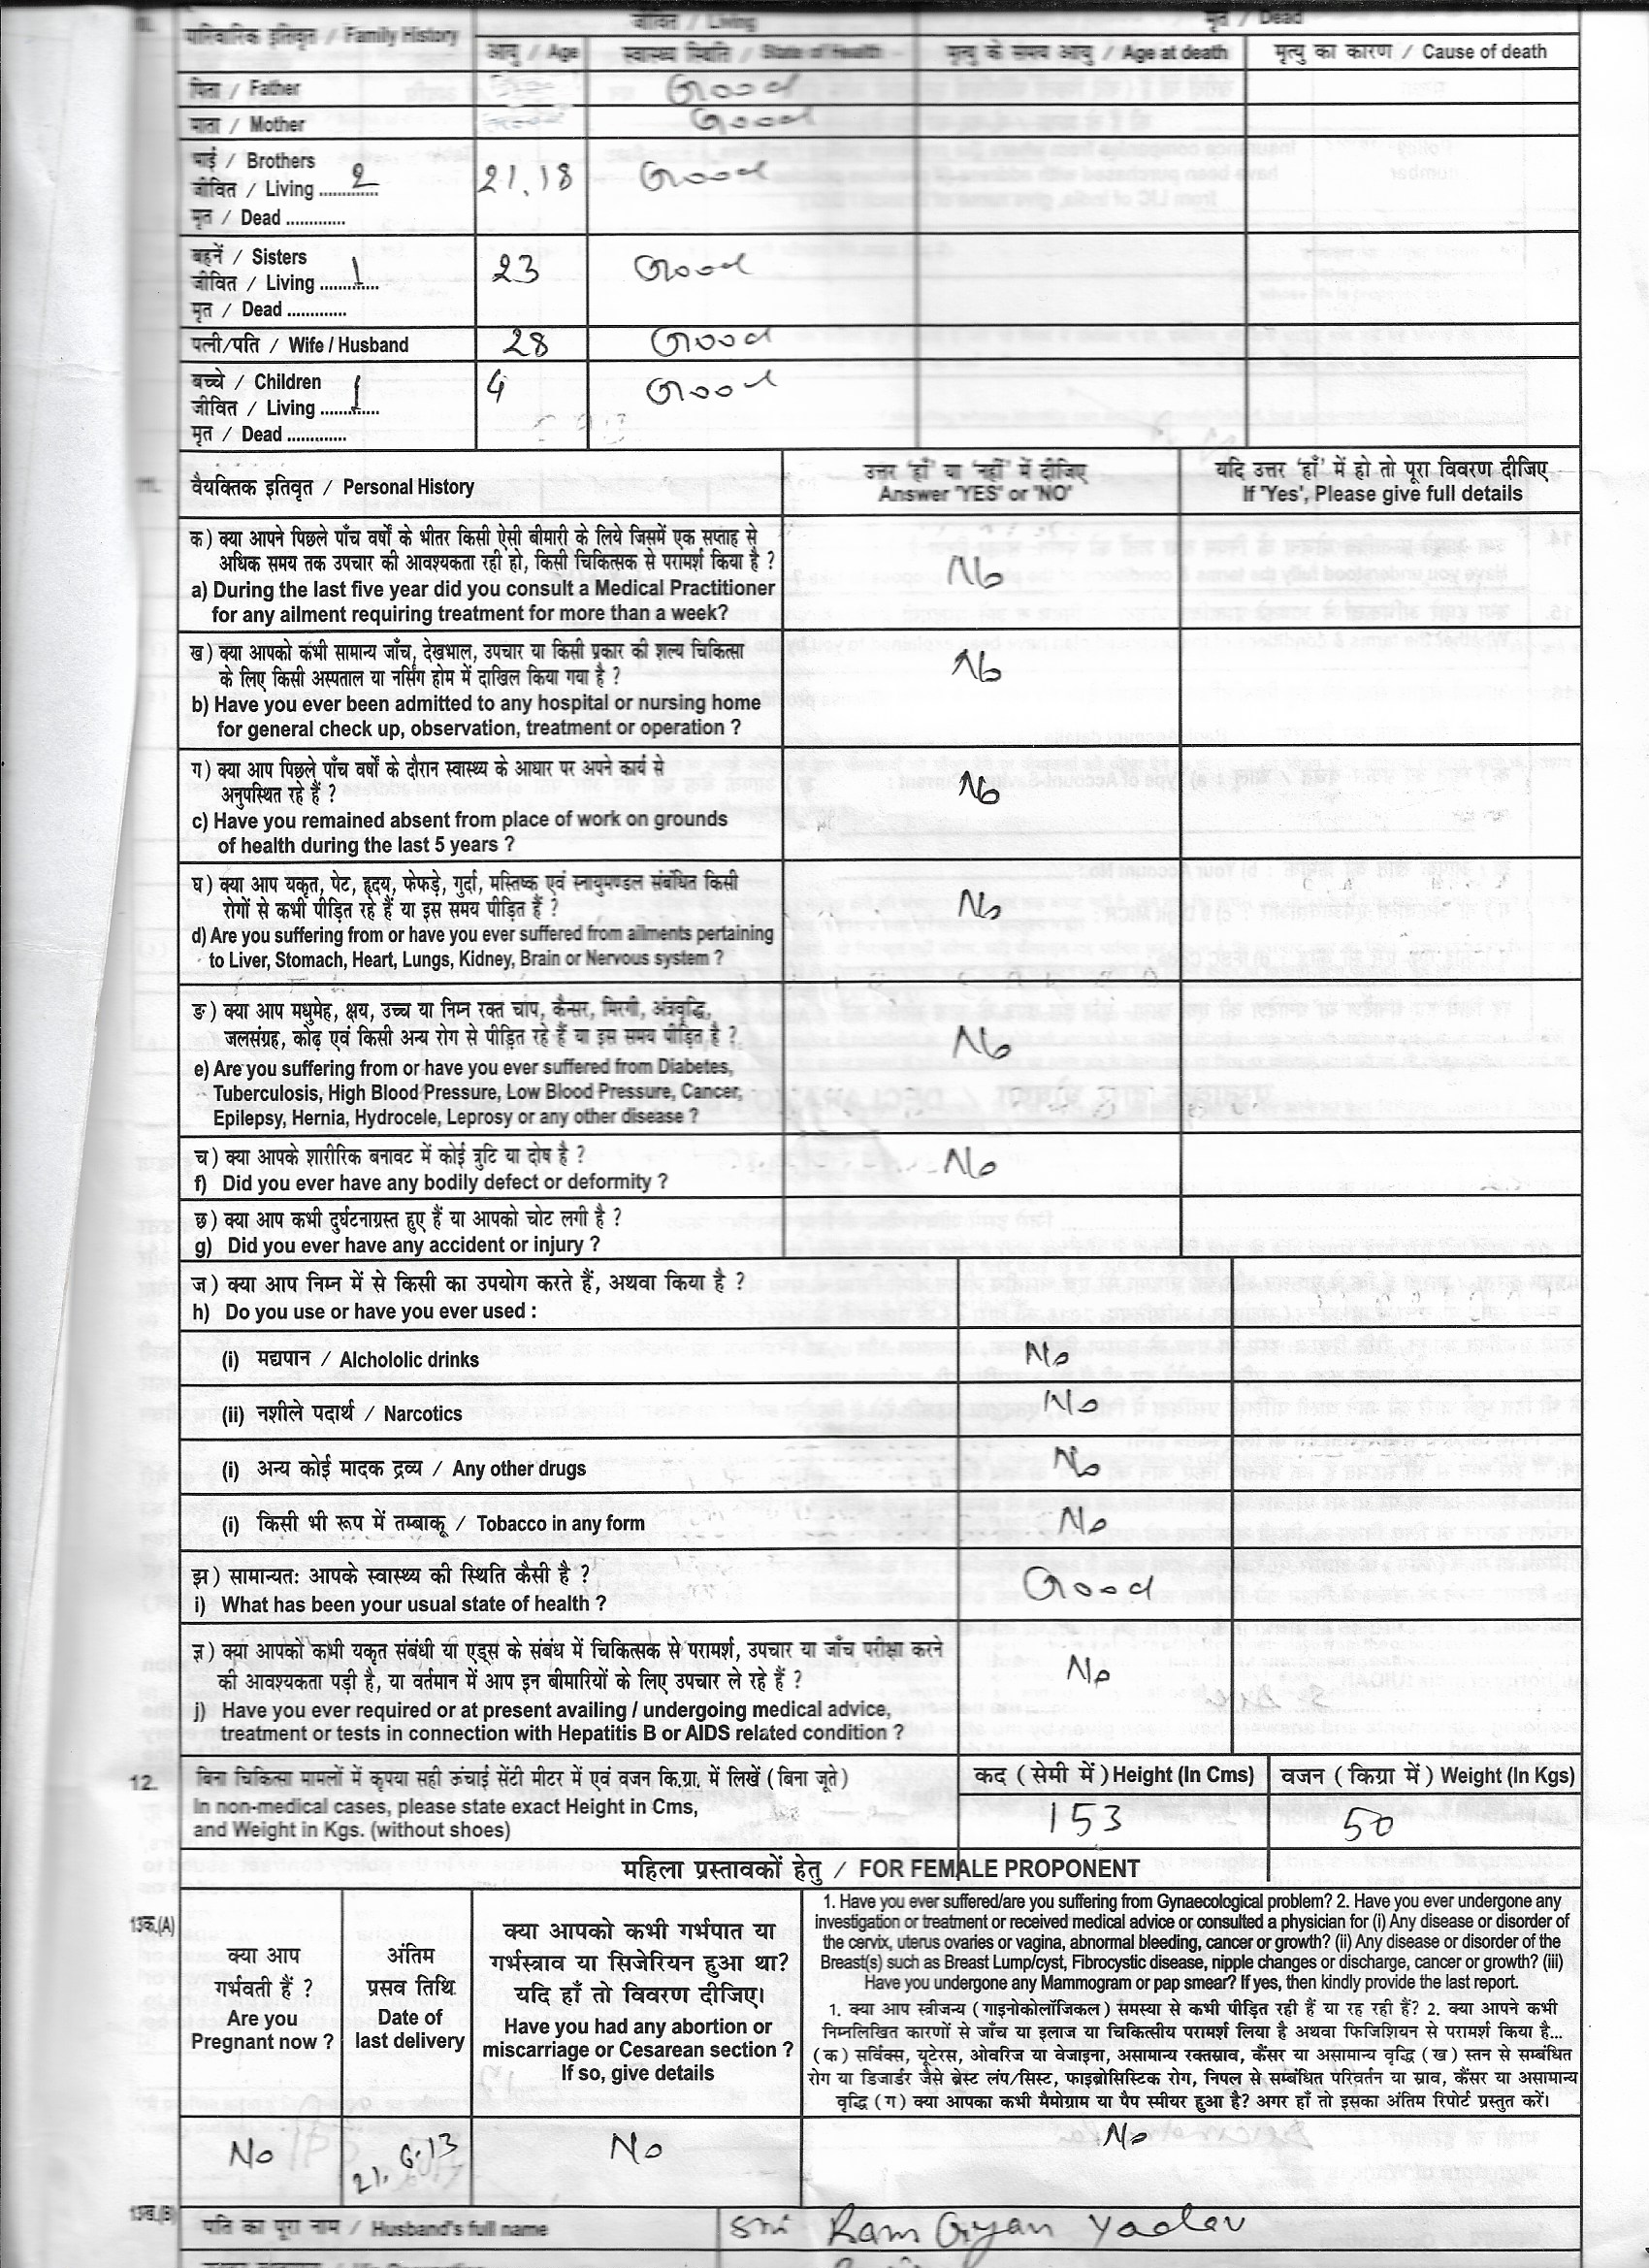 पारिवारिक इतिवृत / Family History
जीवित / Living
मृत / Dead
आयु / Age
स्वास्थ्य स्थिति / State of Health
मृत्यु के समय आयु / Age at death
मृत्यु का कारण / Cause of death
पिता / Father
Good
माता / Mother
Good
भाई / Brothers
जीवित / Living ....2....
21, 18
Good
मृत / Dead .............
बहनें / Sisters
जीवित / Living ....1....
23
Good
मृत / Dead .............
पत्नी/पति / Wife / Husband
28
Good
बच्चे / Children
जीवित / Living ....1....
4
Good
मृत / Dead .............
11.
वैयक्तिक इतिवृत / Personal History
उत्तर 'हाँ' या 'नहीं' में दीजिए
Answer 'YES' or 'NO'
यदि उत्तर 'हाँ' में हो तो पूरा विवरण दीजिए
If 'Yes', Please give full details
क) क्या आपने पिछले पाँच वर्षों के भीतर किसी ऐसी बीमारी के लिये जिसमें एक सप्ताह से
अधिक समय तक उपचार की आवश्यकता रही हो, किसी चिकित्सक से परामर्श किया है ?
a) During the last five year did you consult a Medical Practitioner
for any ailment requiring treatment for more than a week?
No
ख) क्या आपको कभी सामान्य जाँच, देखभाल, उपचार या किसी प्रकार की शल्य चिकित्सा
के लिए किसी अस्पताल या नर्सिंग होम में दाखिल किया गया है ?
b) Have you ever been admitted to any hospital or nursing home
for general check up, observation, treatment or operation ?
No
ग) क्या आप पिछले पाँच वर्षों के दौरान स्वास्थ्य के आधार पर अपने कार्य से
अनुपस्थित रहे हैं ?
c) Have you remained absent from place of work on grounds
of health during the last 5 years ?
No
घ) क्या आप यकृत, पेट, हृदय, फेफड़े, गुर्दा, मस्तिष्क एवं स्नायुमण्डल संबंधित किसी
रोगों से कभी पीड़ित रहे हैं या इस समय पीड़ित हैं ?
d) Are you suffering from or have you ever suffered from ailments pertaining
to Liver, Stomach, Heart, Lungs, Kidney, Brain or Nervous system ?
No
ङ) क्या आप मधुमेह, क्षय, उच्च या निम्न रक्त चाप, कैन्सर, मिरगी, अंत्रवृद्धि,
जलसंग्रह, कोढ़ एवं किसी अन्य रोग से पीड़ित रहे हैं या इस समय पीड़ित है ?
e) Are you suffering from or have you ever suffered from Diabetes,
Tuberculosis, High Blood Pressure, Low Blood Pressure, Cancer,
Epilepsy, Hernia, Hydrocele, Leprosy or any other disease ?
No
च) क्या आपके शारीरिक बनावट में कोई त्रुटि या दोष है ?
f) Did you ever have any bodily defect or deformity ?
No
छ) क्या आप कभी दुर्घटनाग्रस्त हुए हैं या आपको चोट लगी है ?
g) Did you ever have any accident or injury ?
ज) क्या आप निम्न में से किसी का उपयोग करते हैं, अथवा किया है ?
h) Do you use or have you ever used :
(i) मद्यपान / Alchololic drinks
No
(ii) नशीले पदार्थ / Narcotics
No
(i) अन्य कोई मादक द्रव्य / Any other drugs
No
(i) किसी भी रूप में तम्बाकू / Tobacco in any form
No
झ) सामान्यतः आपके स्वास्थ्य की स्थिति कैसी है ?
i) What has been your usual state of health ?
Good
ञ) क्या आपको कभी यकृत संबंधी या एड्स के संबंध में चिकित्सक से परामर्श, उपचार या जाँच परीक्षा करने
की आवश्यकता पड़ी है, या वर्तमान में आप इन बीमारियों के लिए उपचार ले रहे हैं ?
j) Have you ever required or at present availing / undergoing medical advice,
treatment or tests in connection with Hepatitis B or AIDS related condition ?
No
12.
बिना चिकित्सा मामलों में कृपया सही ऊंचाई सेंटी मीटर में एवं वजन कि.ग्रा. में लिखें (बिना जूते)
In non-medical cases, please state exact Height in Cms,
and Weight in Kgs. (without shoes)
कद (सेमी में) Height (In Cms)
वजन (किग्रा में) Weight (In Kgs)
153
50
महिला प्रस्तावकों हेतु / FOR FEMALE PROPONENT
13क.(A)
क्या आप
गर्भवती हैं ?
Are you
Pregnant now ?
अंतिम
प्रसव तिथि
Date of
last delivery
क्या आपको कभी गर्भपात या
गर्भस्त्राव या सिजेरियन हुआ था?
यदि हाँ तो विवरण दीजिए।
Have you had any abortion or
miscarriage or Cesarean section ?
If so, give details
1. Have you ever suffered/are you suffering from Gynaecological problem? 2. Have you ever undergone any
investigation or treatment or received medical advice or consulted a physician for (i) Any disease or disorder of
the cervix, uterus ovaries or vagina, abnormal bleeding, cancer or growth? (ii) Any disease or disorder of the
Breast(s) such as Breast Lump/cyst, Fibrocystic disease, nipple changes or discharge, cancer or growth? (iii)
Have you undergone any Mammogram or pap smear? If yes, then kindly provide the last report.
1. क्या आप स्त्रीजन्य (गाइनोकोलॉजिकल) समस्या से कभी पीड़ित रही हैं या रह रही हैं? 2. क्या आपने कभी
निम्नलिखित कारणों से जाँच या इलाज या चिकित्सीय परामर्श लिया है अथवा फिजिशियन से परामर्श किया है...
(क) सर्विक्स, यूटेरस, ओवरिज या वेजाइना, असामान्य रक्तस्राव, कैंसर या असामान्य वृद्धि (ख) स्तन से सम्बंधित
रोग या डिजार्डर जैसे ब्रेस्ट लंप/सिस्ट, फाइब्रोसिस्टिक रोग, निपल से सम्बंधित परिवर्तन या स्राव, कैंसर या असामान्य
वृद्धि (ग) क्या आपका कभी मैमोग्राम या पैप स्मीयर हुआ है? अगर हाँ तो इसका अंतिम रिपोर्ट प्रस्तुत करें।
No
21.6.13
No
No
13ख.(B)
पति का पूरा नाम / Husband's full name
Shri Ram Gyan Yadav